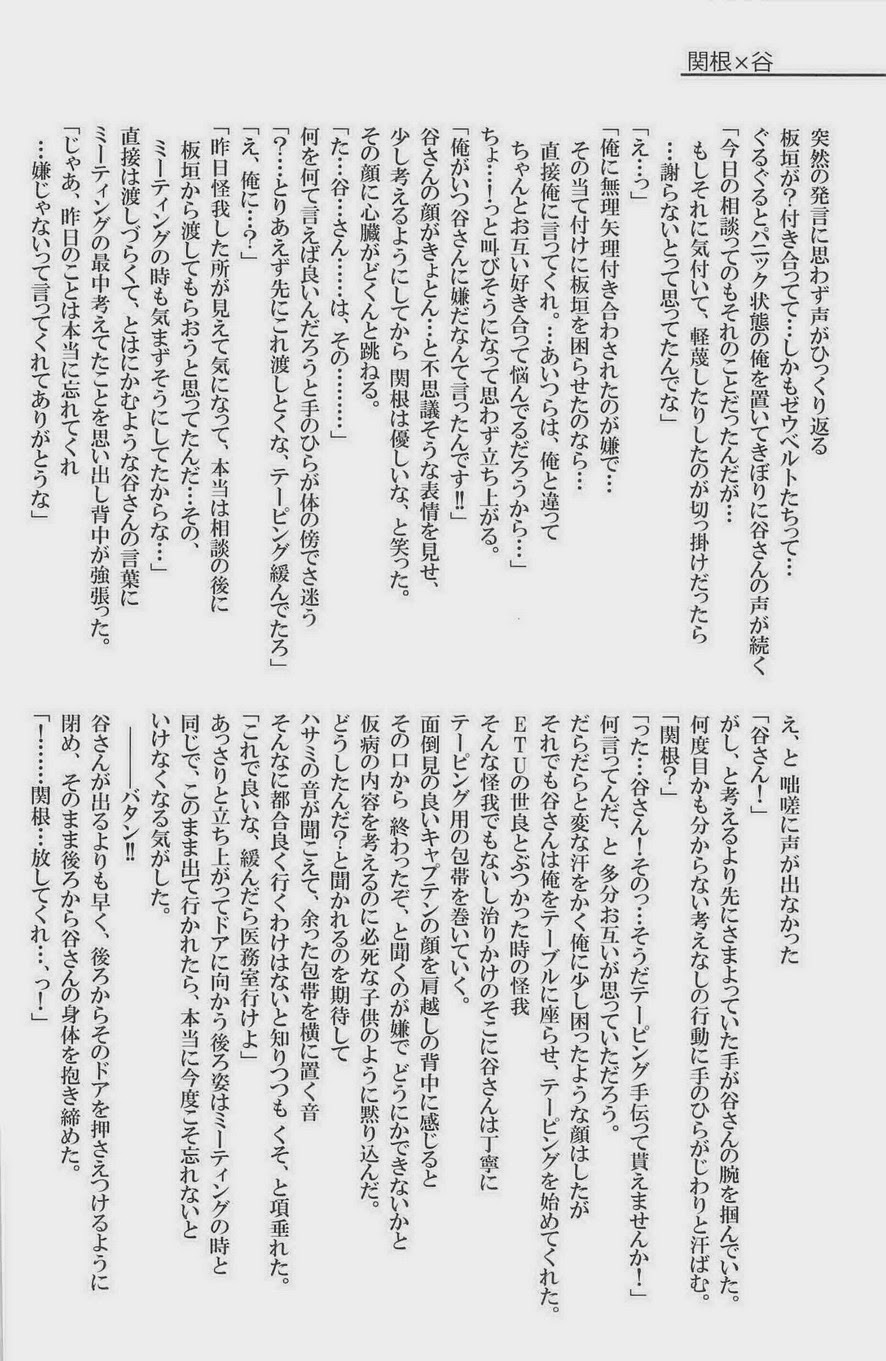 関根×谷
突然の発言に思わず声がひっくり返る
板垣が？付き合ってて…しかもゼウベルトたちって…
ぐるぐるとパニック状態の俺を置いてきぼりに谷さんの声が続く
「今日の相談ってのもそれのことだったんだが…
もしそれに気付いて、軽蔑したりしたのが切っ掛けだったら
…謝らないとって思ってたんでな」
「え…っ」
「俺に無理矢理付き合わされたのが嫌で…
その当て付けに板垣を困らせたのなら…
直接俺に言ってくれ。…あいつらは、俺と違って
ちゃんとお互い好き合って悩んでるだろうから…」
ちょ…！っと叫びそうになって思わず立ち上がる。
「俺がいつ谷さんに嫌だなんて言ったんです!!」
谷さんの顔がきょとん…と不思議そうな表情を見せ、
少し考えるようにしてから 関根は優しいな、と笑った。
その顔に心臓がどくんと跳ねる。
「た…谷…さん……は、その………」
何を何て言えば良いんだろうと手のひらが体の傍でさ迷う
「？……とりあえず先にこれ渡しとくな、テーピング緩んでたろ」
「え、俺に…？」
「昨日怪我した所が見えて気になって、本当は相談の後に
板垣から渡してもらおうと思ってたんだ…その、
ミーティングの時も気まずそうにしてたからな…」
直接は渡しづらくて、とはにかむような谷さんの言葉に
ミーティングの最中考えてたことを思い出し背中が強張った。
「じゃあ、昨日のことは本当に忘れてくれ
…嫌じゃないって言ってくれてありがとうな」
え、と 咄嗟に声が出なかった
「谷さん！」
がし、と考えるより先にさまよっていた手が谷さんの腕を掴んでいた。
何度目かも分からない考えなしの行動に手のひらがじわりと汗ばむ。
「関根？」
「った…谷さん！そのっ…そうだテーピング手伝って貰えませんか！」
何言ってんだ、と 多分お互いが思っていただろう。
だらだらと変な汗をかく俺に少し困ったような顔はしたが
それでも谷さんは俺をテーブルに座らせ、テーピングを始めてくれた。
ＥＴＵの世良とぶつかった時の怪我
そんな怪我でもないし治りかけのそこに谷さんは丁寧に
テーピング用の包帯を巻いていく。
面倒見の良いキャプテンの顔を肩越しの背中に感じると
その口から 終わったぞ、と聞くのが嫌で どうにかできないかと
仮病の内容を考えるのに必死な子供のように黙り込んだ。
どうしたんだ？と聞かれるのを期待して
ハサミの音が聞こえて、余った包帯を横に置く音
そんなに都合良く行くわけはないと知りつつも くそ、と項垂れた。
「これで良いな、緩んだら医務室行けよ」
あっさりと立ち上がってドアに向かう後ろ姿はミーティングの時と
同じで、このまま出て行かれたら、本当に今度こそ忘れないと
いけなくなる気がした。
―――バタン!!
谷さんが出るよりも早く、後ろからそのドアを押さえつけるように
閉め、そのまま後ろから谷さんの身体を抱き締めた。
「！……関根…放してくれ…、っ！」